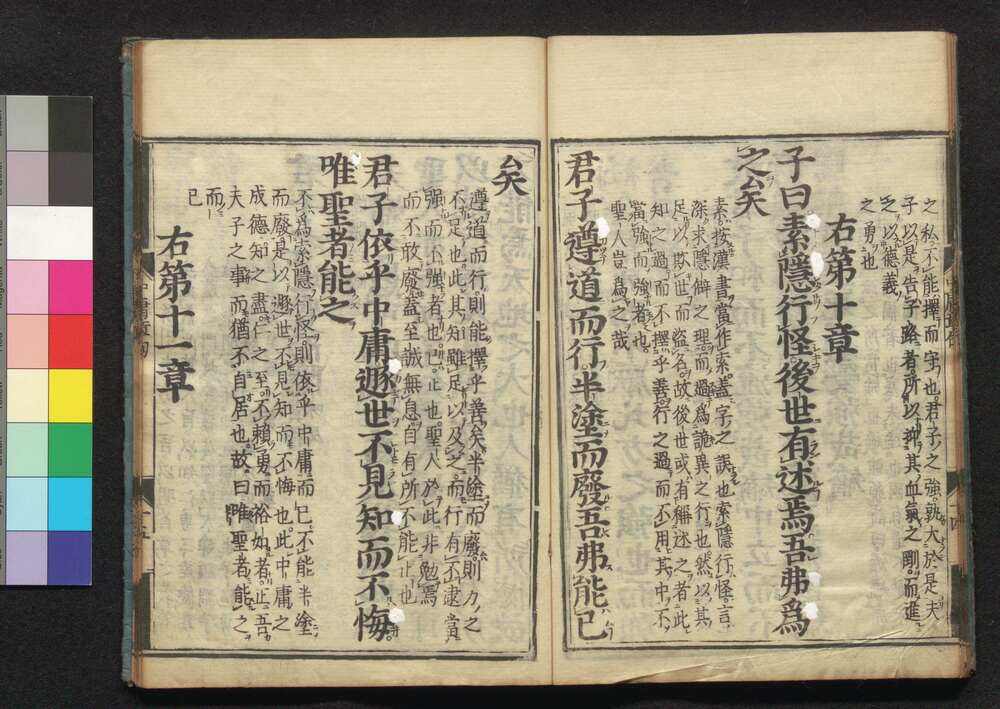 之私不能擇而守也君子之強孰大於是夫
子以是告子路者所以抑其血氣之剛而進
之以德義
之勇也
右第十章
子曰素隱行怪後世有述焉吾弗爲
之矣
素按漢書當作索蓋字之誤也索隱行怪言
深求隱僻之理而過爲詭異之行也然以其
足以欺世而盜名故後世或有稱述之者此
知之過而不擇乎善行之過而不用其中不
當強而強者也
聖人豈爲之哉
君子遵道而行半塗而廢吾弗能已
矣
遵道而行則能擇乎善矣半塗而廢則力之
不足也此其知雖足以及之而行有不逮當
強而不強者也已止也聖人於此非勉焉
而不敢廢蓋至誠無息自有所不能止也
君子依乎中庸遯世不見知而不悔
唯聖者能之
不爲索隱行怪則依乎中庸而已不能半塗
而廢是以遯世不見知而不悔也此中庸之
成德知之盡仁之至不賴勇而裕如者正吾
夫子之事而猶不自居也故曰唯聖者能之
而
已
右第十一章